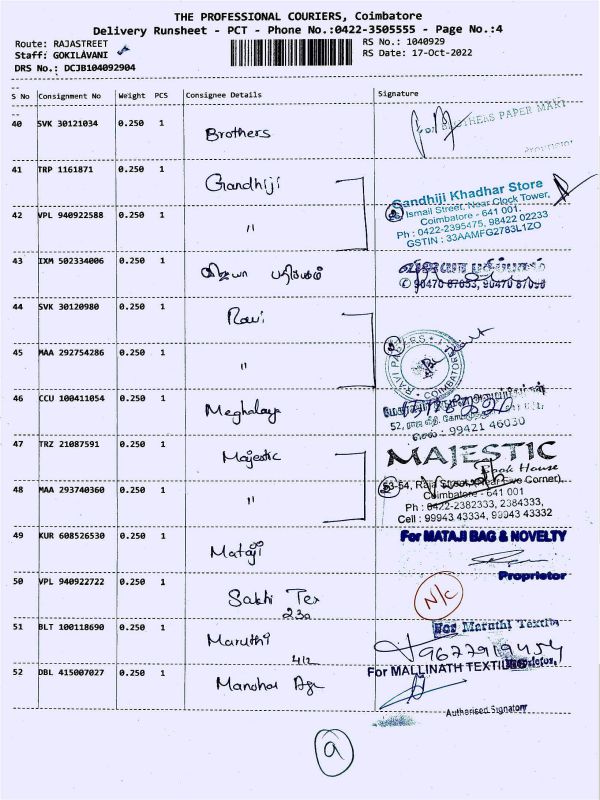 THE PROFESSIONAL COURIERS, Coimbatore
Delivery Runsheet - PCT - Phone No.:0422-3505555 - Page No.:4
Route: RAJASTREET
RS No.: 1040929
Staff: GOKILAVANI
RS Date: 17-Oct-2022
DRS No.: DCJB104092904
S No Consignment No Weight PCS Consignee Details Signature
40 SVK 30121034 0.250 1 Brothers
For BROTHERS PAPER MART
Proprietor
41 TRP 1161871 0.250 1 Gandhiji
42 VPL 940922588 0.250 1 "
Gandhiji Khadhar Store
Ismail Street, Near Clock Tower,
Coimbatore - 641 001.
Ph : 0422-2395475, 98422 02233
GSTIN : 33AAMFG2783L1ZO
43 IXM 502334006 0.250 1 விஜயா பதிப்பகம்
விஜயா பதிப்பகம்
44 SVK 30120980 0.250 1 Ravi
45 MAA 292754286 0.250 1 "
RAVI PAPERS
COIMBATORE
46 CCU 100411054 0.250 1 Meghalaya
99421 46030
47 TRZ 21087591 0.250 1 Majestic
48 MAA 293740360 0.250 1 "
MAJESTIC
Book House
53-54, Raja Street, (Near Five Corner),
Coimbatore - 641 001
Ph : 0422-2382333, 2384333,
Cell : 99943 43334, 99943 43332
49 KUR 608526530 0.250 1 Mataji
For MATAJI BAG & NOVELTY
Proprietor
50 VPL 940922722 0.250 1 Sakhi Tex
230
N/C
51 BLT 100118690 0.250 1 Maruthi
412
For Maruthi Textile
9677919454
Proprietor
52 DBL 415007027 0.250 1 Manohar Agn
For MALLINATH TEXTILE
Authorised Signatory
a